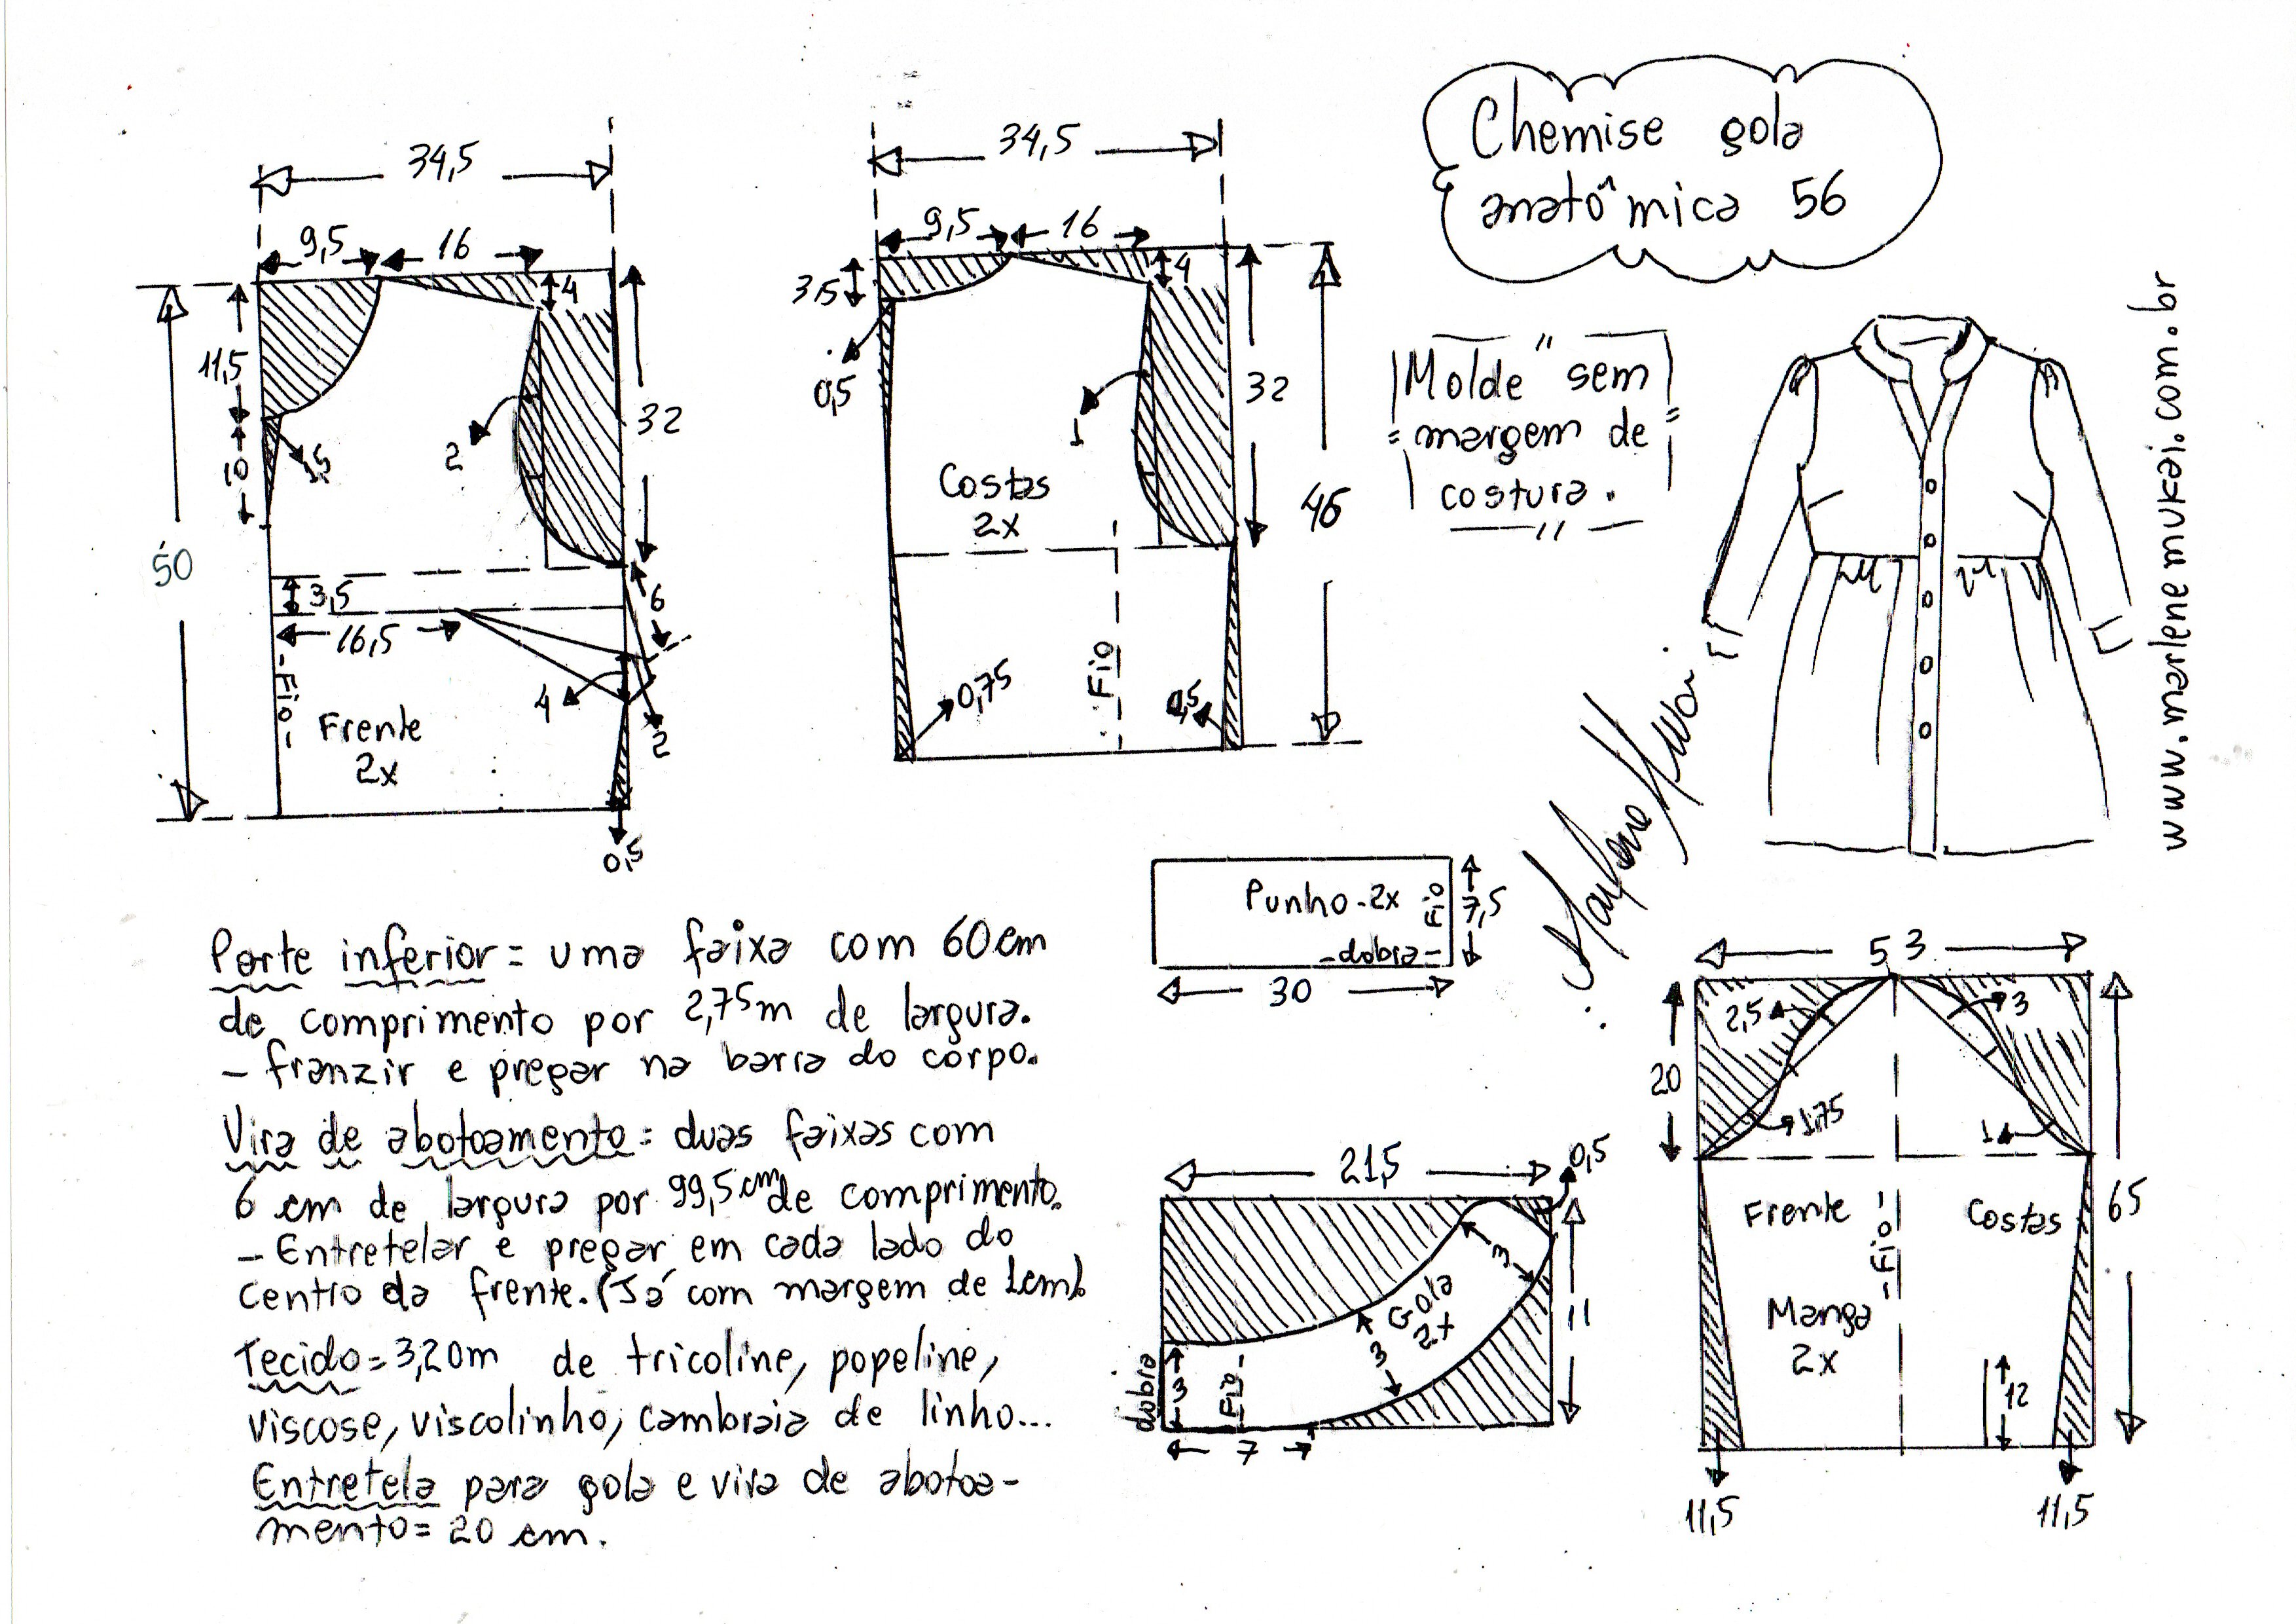 Chemise gola
anatômica 56
"Molde" sem
margem de
costura.
www.marlenemukai.com.br
34,5
9,5
16
4
11,5
10
1,5
2
32
50
3,5
16,5
6
4
2
Fio
Frente
2x
0,5
34,5
9,5
16
3,5
4
0,5
1
32
46
Costas
2x
Fio
0,75
0,5
Punho - 2x
Fio
7,5
-dobra-
30
Parte inferior = uma faixa com 60 cm
de comprimento por 2,75m de largura.
- franzir e pregar na barra do corpo.
Vira de abotoamento = duas faixas com
6 cm de largura por 99,5 cm de comprimento.
- Entretelar e pregar em cada lado do
centro da frente. (Já com margem de 1cm).
Tecido = 3,20m de tricoline, popeline,
viscose, viscolinho, cambraia de linho...
Entretela para gola e vira de abotoa-
mento = 20 cm.
21,5
0,5
3
Gola
2x
3
11
dobra
3
Fio
7
53
2,5
3
20
1,75
1
Frente
Costas
65
Fio
Manga
2x
12
11,5
11,5